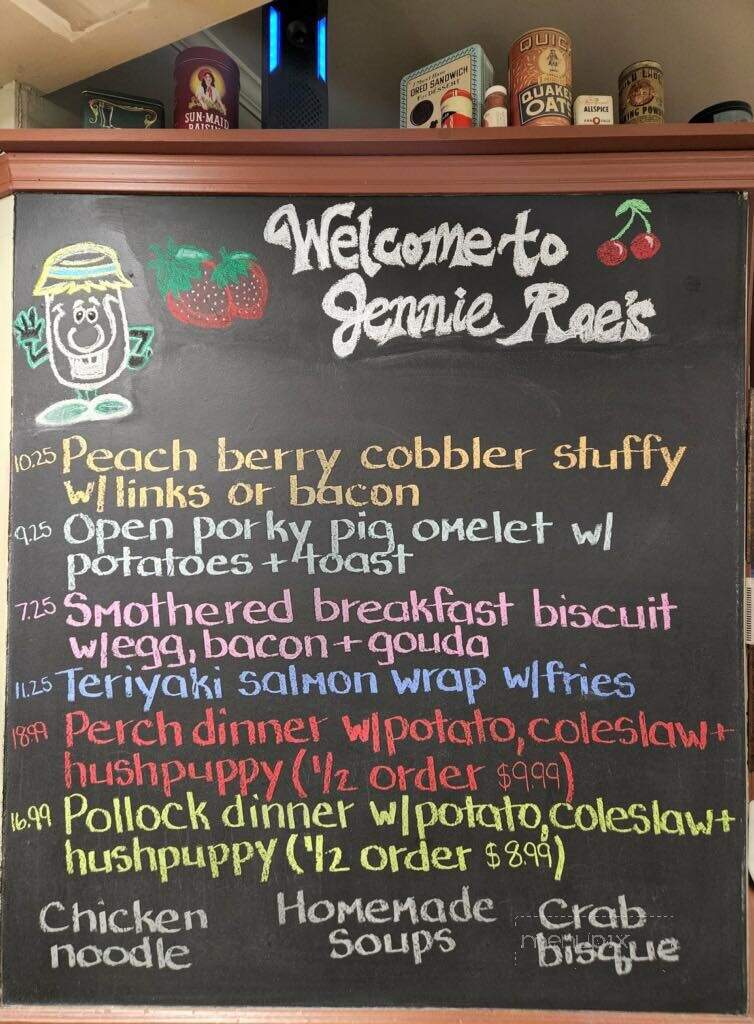 SUN-MAID
RAISINS
OREO SANDWICH
For DESSERT
QUICK
QUAKER
OATS
ALLSPICE
Welcome to
Jennie Rae's
10.25 Peach berry cobbler stuffy
w/links or bacon
9.25 Open porky pig omelet w/
potatoes + toast
7.25 Smothered breakfast biscuit
w/egg, bacon + gouda
11.25 Teriyaki salmon wrap w/fries
18.99 Perch dinner w/potato, coleslaw +
hushpuppy (1/2 order $9.99)
16.99 Pollock dinner w/potato, coleslaw +
hushpuppy (1/2 order $8.99)
Homemade
soups
Chicken
noodle
Crab
bisque
menupix